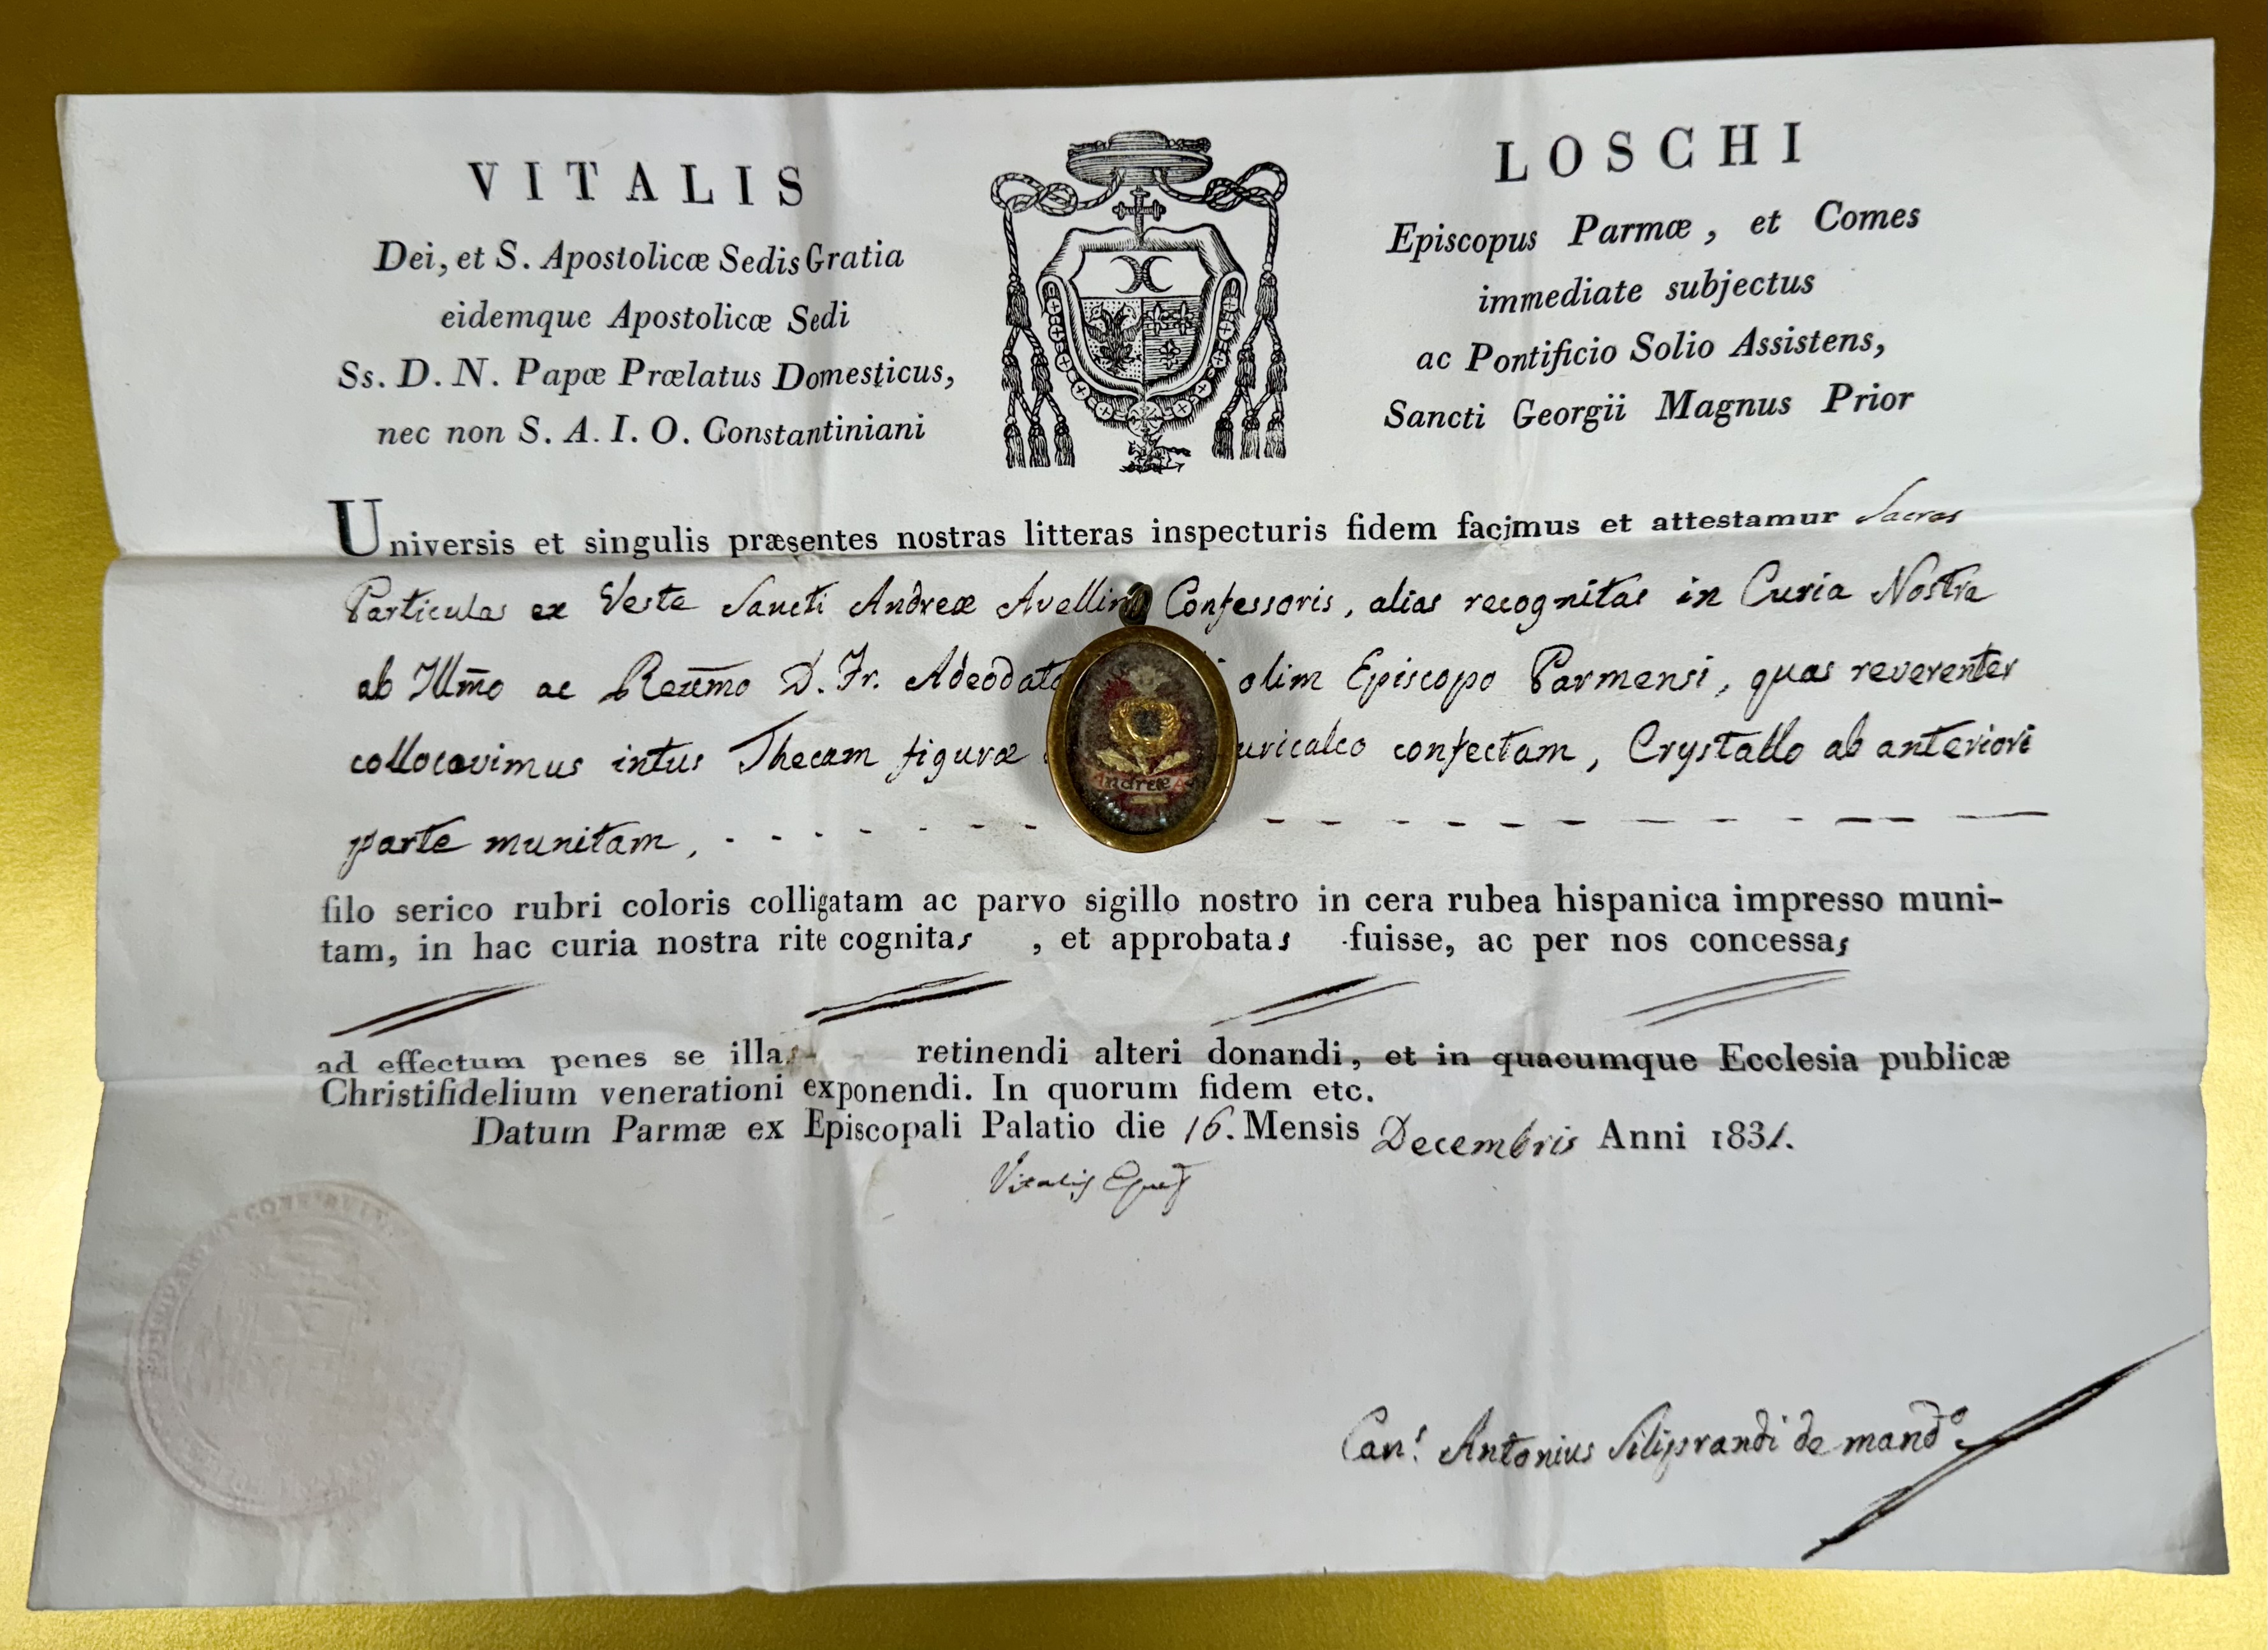 VITALIS
Dei, et S. Apostolicæ Sedis Gratia
eidemque Apostolicæ Sedi
Ss. D. N. Papæ Prælatus Domesticus,
nec non S. A. I. O. Constantiniani
LOSCHI
Episcopus Parmæ, et Comes
immediate subjectus
ac Pontificio Solio Assistens,
Sancti Georgii Magnus Prior
Universis et singulis præsentes nostras litteras inspecturis fidem facimus et attestamur Sacras
Particulas ex Veste Sancti Andreæ Avellin Confessoris, alias recognitas in Curia Nostra
ab Illm̅o ac Revm̅o D. Fr. Adeodato olim Episcopo Parmensi, quas reverenter
collocavimus intus Thecam figuræ uricalco confectam, Crystallo ab anteriori
parte munitam, - - - - - - - - - - - - - - - - - -
Andreæ
filo serico rubri coloris colligatam ac parvo sigillo nostro in cera rubea hispanica impresso muni-
tam, in hac curia nostra rite cognitas , et approbatas fuisse, ac per nos concessas
ad effectum penes se illas retinendi alteri donandi, et in quacumque Ecclesia publicæ
Christifidelium venerationi exponendi. In quorum fidem etc.
Datum Parmæ ex Episcopali Palatio die 16. Mensis Decembris Anni 1831.
Vitalis
Can.s Antonius Siliprandi de mand.o